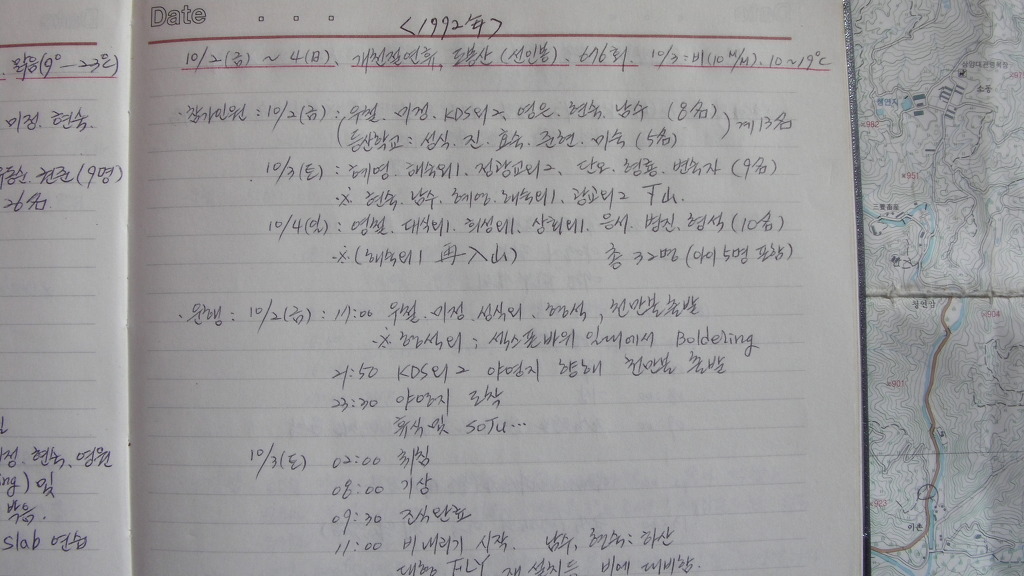 Date
<1992年>
10/2(금) ~ 4(日). 개천절연휴, 도봉산 (선인봉). 676회. 10/3:비(10㎜). 10~19℃
· 참가인원 : 10/2(금) : 우철. 미정. KDS외2. 영은. 현숙. 남수 (8名)
(등산학교 : 성식. 진. 효숙. 준현. 미숙 (5名)) 계 13名
10/3(토) : 혜영. 해숙외1. 전광교외2. 단오. 형룡. 변숙자 (9名)
※ 현숙. 남수. 혜영. 해숙외1. 광교외2 下山.
10/4(日) : 영철. 대식외1. 희성외1. 상희외1. 은서. 범진. 형석 (10名)
※ (해숙외1 再入山) 총 32명 (아이 5명 포함)
· 운행 : 10/2(금) : 17:00 우철. 미정. 성식외. 형석, 천만불출발
※ 형석외 : 섹스폰바위 일대에서 Boldering
21:50 KDS외2 야영지 향해 천만불 출발
23:30 야영지 도착
휴식및 SOJU…
10/3(토) 02:00 취침
08:00 기상
09:30 조식완료
11:00 비 내리기 시작. 남수, 현숙: 하산
대형 FLY 재설치등 비에 대비함.
. 맑음(9°—23℃)
미정. 현숙.
(9명)
26名
현숙. 영원
ing) 및
slab 연습